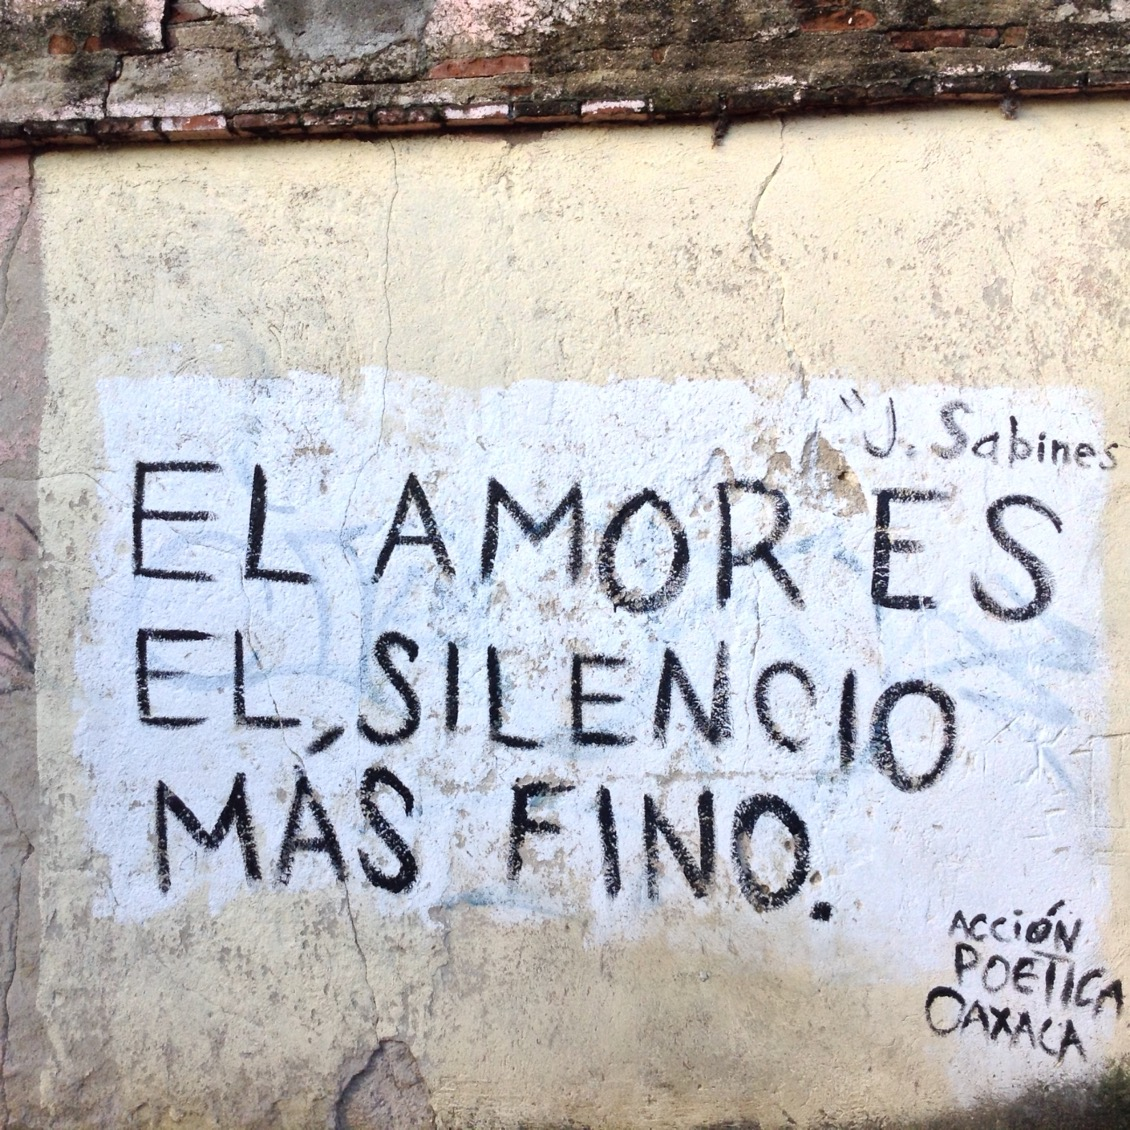 "J. Sabines
EL AMOR ES
EL SILENCIO
MÁS FINO.
ACCIÓN
POETICA
OAXACA